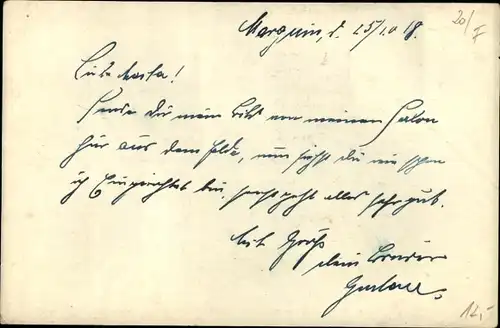 Marquin, d. 25/10 18.
Liebe Marta!
Sende Dir mein Bild von meinem Salon
hier aus dem Felde, nun siehst Du wie schön
ich Eingerichtet bin, sonst geht alles sehr gut.
Mit Gruß
dein Bruder
Gustav.
20/I
12,-